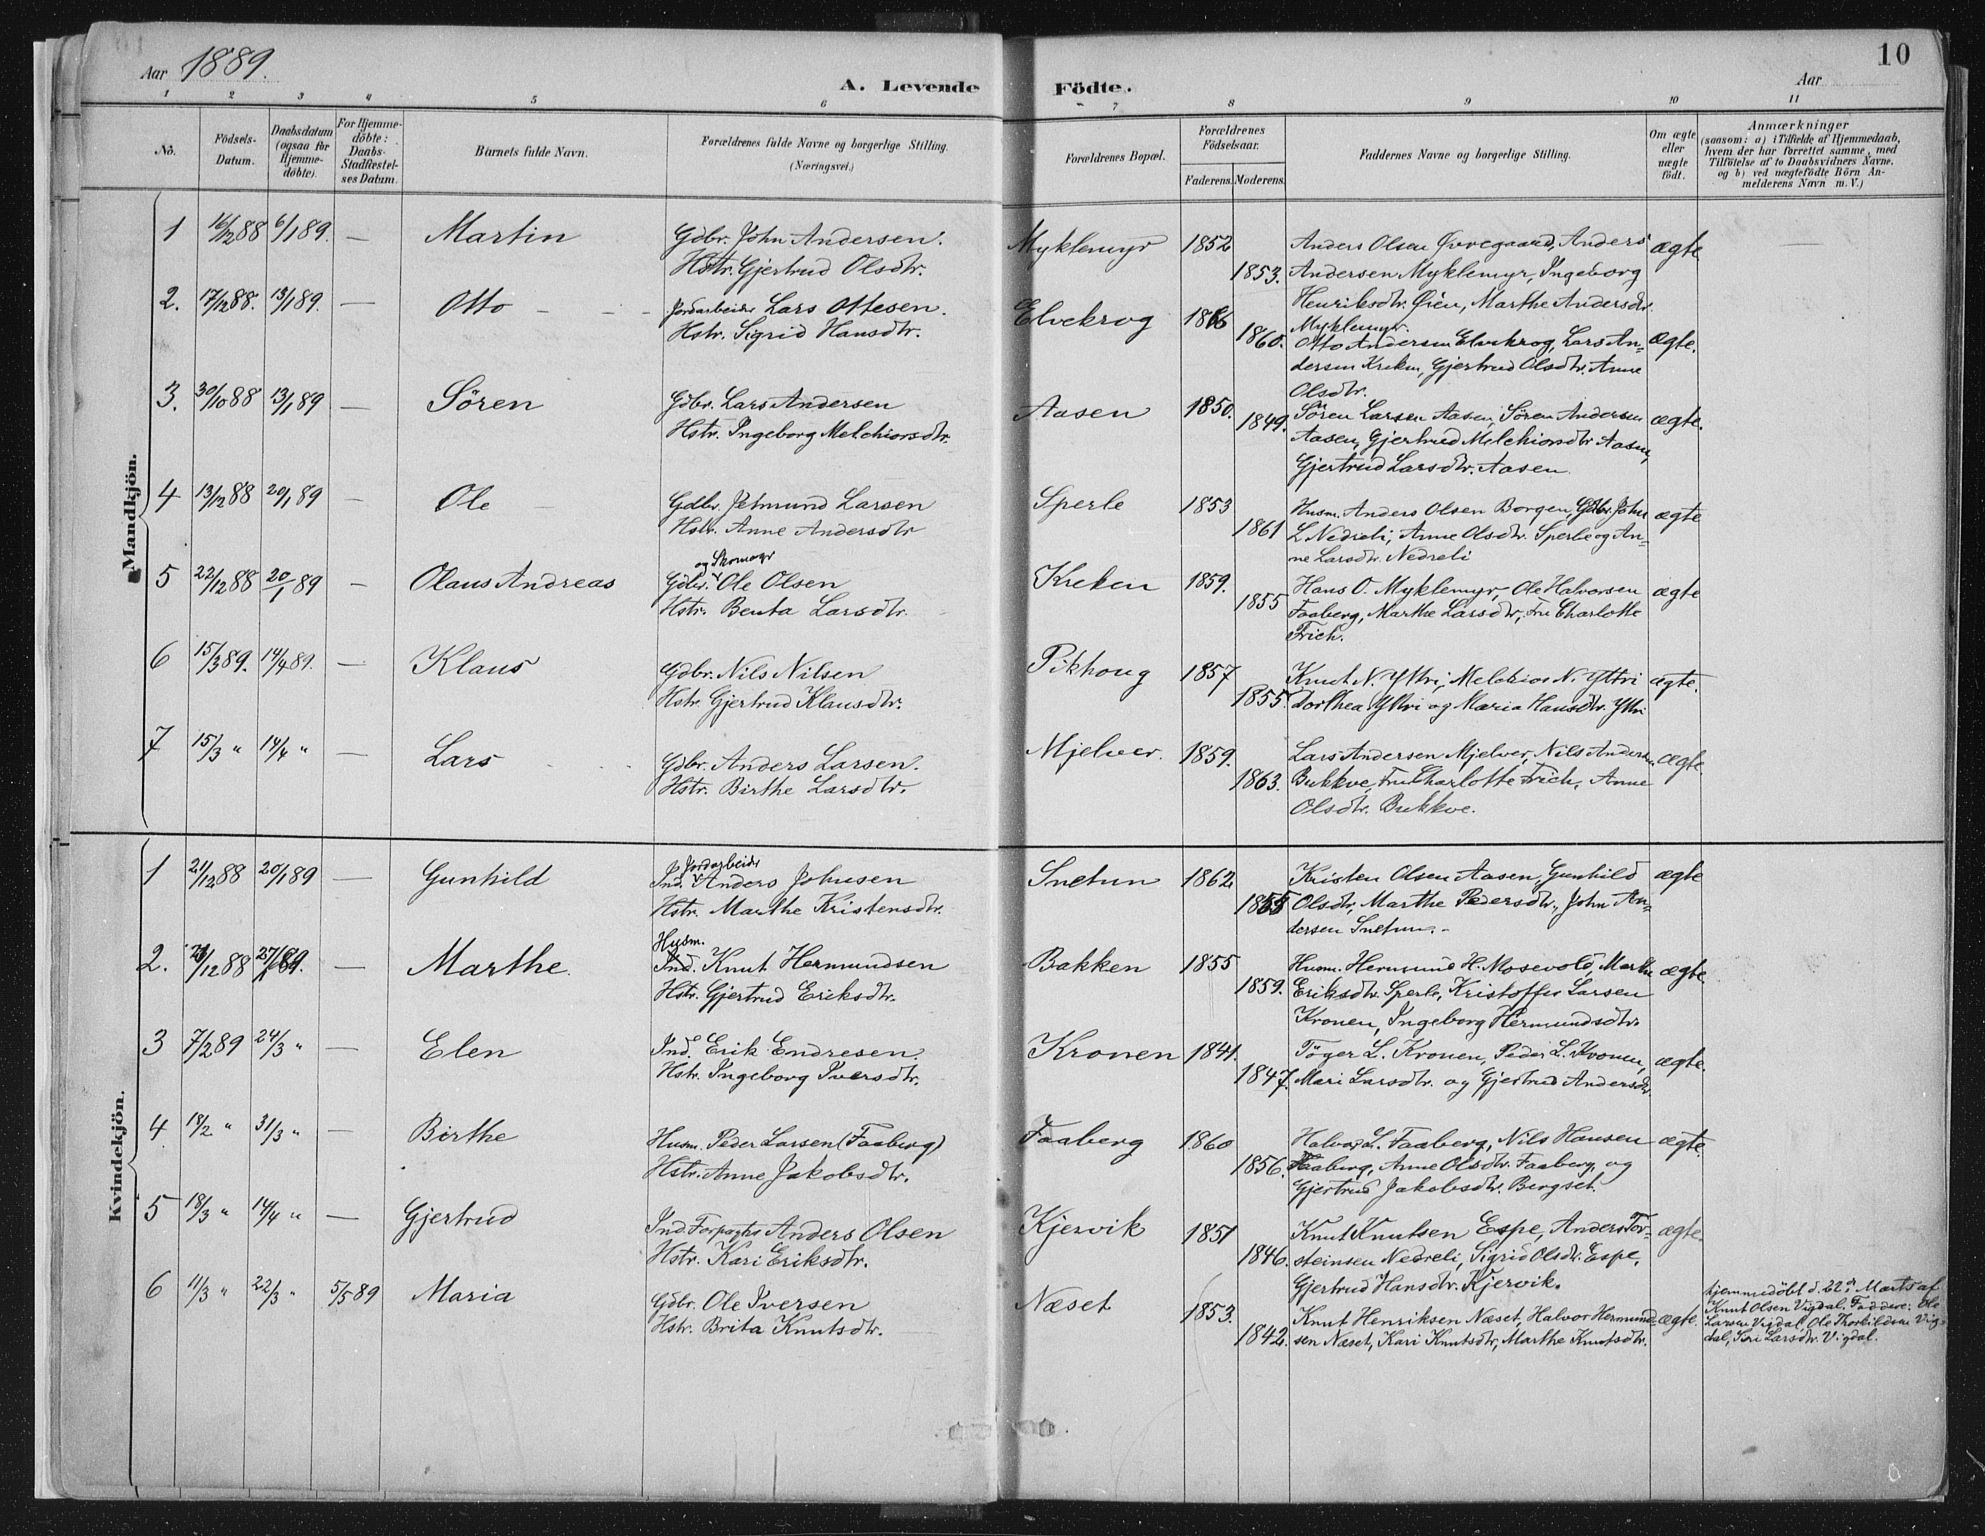 Aar 1889.
A. Levende Födte.
Aar
10
1 2 3 4 5 6 7 8 9 10 11
No.
Födsels-Datum.
Daabsdatum (ogsaa for Hjemme-döbte).
For Hjemme-döbte: Daabs-Stadfæstel-ses Datum.
Barnets fulde Navn.
Forældrenes fulde Navne og borgerlige Stilling.
(Næringsvei.)
Forældrenes Bopæl.
Forældrenes Födselsaar.
Faderens. Moderens.
Faddernes Navne og borgerlige Stilling.
Om ægte eller uægte födt.
Anmærkninger
(saasom: a) i Tilfælde af Hjemmedaab,
hvem der har forrettet samme, med
Tilföielse af to Daabsvidners Navne,
og b) ved uægtefödte Börn An-
melderens Navn m. V.)
Mandkjön.
1 16/12 88 6/1 89. — Martin Gdbr. John Andersen. Myklemyr 1852 Anders Olsen Övregaard, Anders ægte
Hstr. Gjertrud Olsdtr. 1853. Andersen Myklemyr, Ingeborg
Henriksdtr. Öien, Marthe Andersdtr.
Myklemyr.
2. 17/12 88. 13/1 89. — Otto Jordarbeider Lars Ottesen. Elvekrog 1866
Hstr. Sigrid Hansdtr. 1860. Otto Andersen Elvekrog, Lars An= ægte.
dersen Kreken, Gjertrud Olsdtr. Anne
Olsdtr.
3. 30/10 88 13/1 89 — Sören Gdbr. Lars Andersen Aasen 1850. Sören Larsen Aasen, Sören Andersen ægte.
Hstr. Ingeborg Melchiorsdtr. 1849. Aasen, Gjertrud Melchiorsdtr Aasen,
Gjertrud Larsdtr. Aasen
4 13/12 88 20/1 89 — Ole Gdbr. Jetmund Larsen Sperle 1853 Husm. Anders Olsen Borgen, Gdbr. John ægte
Hstr. Anne Andersdtr 1861 L Nedreli, Anne Olsdtr. Sperle og An=
ne Larsdtr. Nedreli
5 22/12 88 20/1 89 — Olaus Andreas Gdbr. og Skomager Ole Olsen Kreken 1859. Hans O. Myklemyr, Ole Halvorsen ægte
Hstr. Benta Larsdtr. 1855 Faaberg, Marthe Larsdtr, Fru Charlotte
Frich.
6 15/3 89. 14/4 89. — Klaus Gdbr. Nils Nilsen Pikhoug 1857 Knut N. Yttri, Melchior N. Yttri ægte.
Hstr. Gjertrud Klausdtr. 1855. Dorthea Yttri og Maria Hansdtr. Yttri
7 15/3 " 14/4 " — Lars Gdbr. Anders Larsen. Mjelver. 1859. Lars Andersen Mjelver, Nils Andersen ægte
Hstr. Birthe Larsdtr. 1863. Bukkve, Fru Charlotte Frich, Anne
Olsdtr. Bukkve.
Kvindekjön.
1 21/12 88 20/1 89 — Gunhild Ind. Jordarbeider Anders Johnsen Snetun 1862 Kristen Olsen Aasen, Gunhild ægte
Hstr. Marthe Kristensdtr. 1855 Olsdtr, Marthe Pedersdtr., John An=
dersen Snetun.
2. /12 88 27/1 89. — Marthe. Husm. Ind. Knut Hermundsen Bakken 1855 Husm. Hermund H. Mosevold, Marthe ægte.
Hstr. Gjertrud Eriksdtr. 1859. Eriksdtr. Sperle, Kristoffer Larsen
Kronen, Ingeborg Hermundsdtr.
3 7/2 89 24/3 " — Elen Ind. Erik Endresen. Kronen 1841. Töger L. Kronen, Peder L. Kronen, ægte.
Hstr. Ingeborg Iversdtr. 1847. Mari Larsdtr. og Gjertrud Andersdtr.
4 18/2 " 31/3 " — Birthe Husm. Peder Larsen (Faaberg) Faaberg 1860 Halvor L. Faaberg, Nils Hansen ægte
Hstr. Anne Jakobsdtr. 1856. Faaberg, Anne Olsdtr. Faaberg, og
Gjertrud Jakobsdtr. Bergset.
5 18/3 " 14/4 " — Gjertrud Ind. Forpagter Anders Olsen Kjervik 1851 Knut Knutsen Espe, Anders Tor= ægte.
Hstr. Kari Eriksdtr. 1846. steinsen Nedreli, Sigrid Olsdtr. Espe,
Gjertrud Hansdtr. Kjervik.
6 11/3 " 22/3 " 5/5 89 Maria Gdbr. Ole Iversen Næset 1853. Knut Henriksen Næset, Halvor Hermund= ægte.
Hstr. Brita Knutsdtr. 1842. sen Næset, Kari Knutsdtr, Marthe Knutsdtr.
hjemmedöbt d. 22de Marts af
Knut Olsen Vigdal. Faddere: Ole
Larsen Vigdal, Ole Thorkildsen Vig=
dal, Kari Larsdtr. Vigdal.